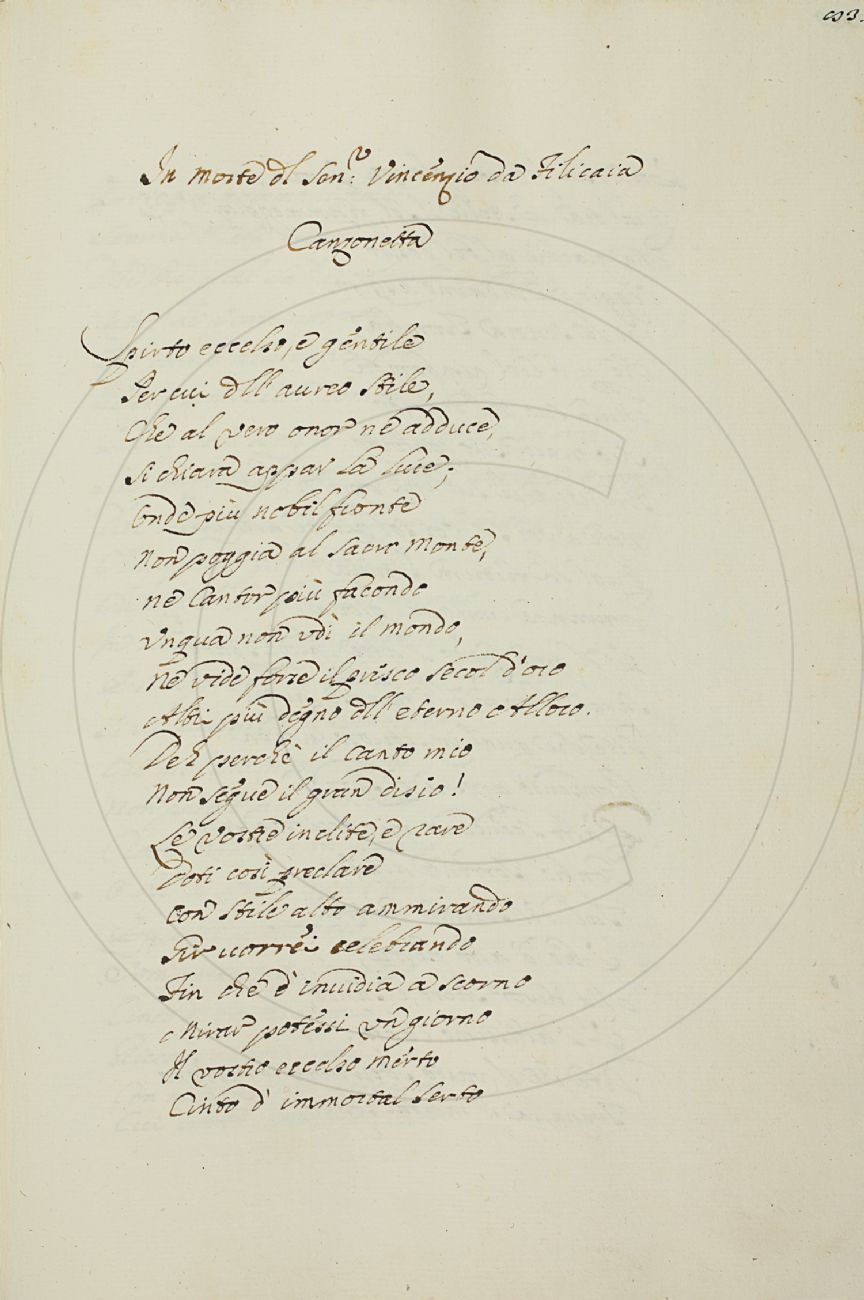 93.
In morte dl Sen.re Vincenzio da Filicaia
Canzonetta
Spirto eccelso, e gentile
Per cui dll' aureo stile,
Che al vero onor ne adduce,
Si chiara appar la luce;
Onde più nobil fronte
Non poggia al sacro Monte,
ne Cantor più facondo
vnqua non vdi il mondo,
Ne vide forse il prisco secol d'oro
Altri più degno dll' eterno Alloro.
Deh perchè il canto mio
Non segue il gran disio!
Le vostre inclite, e rare
Doti così preclare
Con stile alto ammirando
Gir uorrei celebrando
Fin che d' inuidia a scorno
Mirar potessi vn giorno
Il vostro eccelso merto
Cinto d' immortal serto